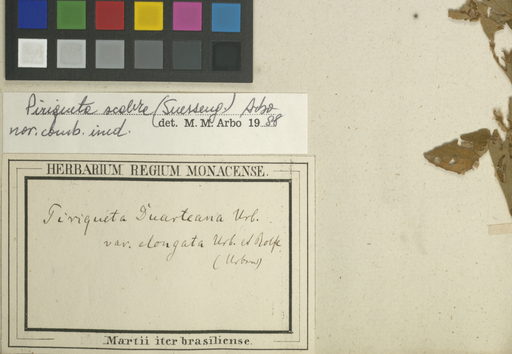 Piriqueta scabra (Suesseng.) Arbo
nov. comb. ined. (det. M. M. Arbo 1988
HERBARIUM REGIUM MONACENSE.
Piriqueta Duarteana Urb.
var. elongata Urb. et Rolfe
(Urban)
Martii iter brasiliense.